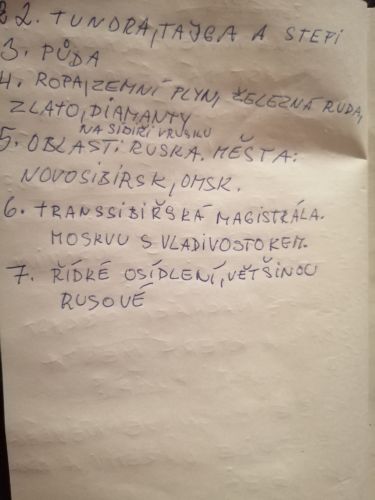 2. TUNDRA, TAJGA A STEPI
3. PŮDA
4. ROPA, ZEMNÍ PLYN, ŽELEZNÁ RUDA,
ZLATO, DIAMANTY
NA SIBIŘI V RUSKU
5. OBLASTI RUSKA. MĚSTA:
NOVOSIBIRSK, OMSK.
6. TRANSSIBIŘSKÁ MAGISTRÁLA.
MOSKVU S VLADIVOSTOKEM.
7. ŘÍDKÉ OSÍDLENÍ, VĚTŠINOU
RUSOVÉ